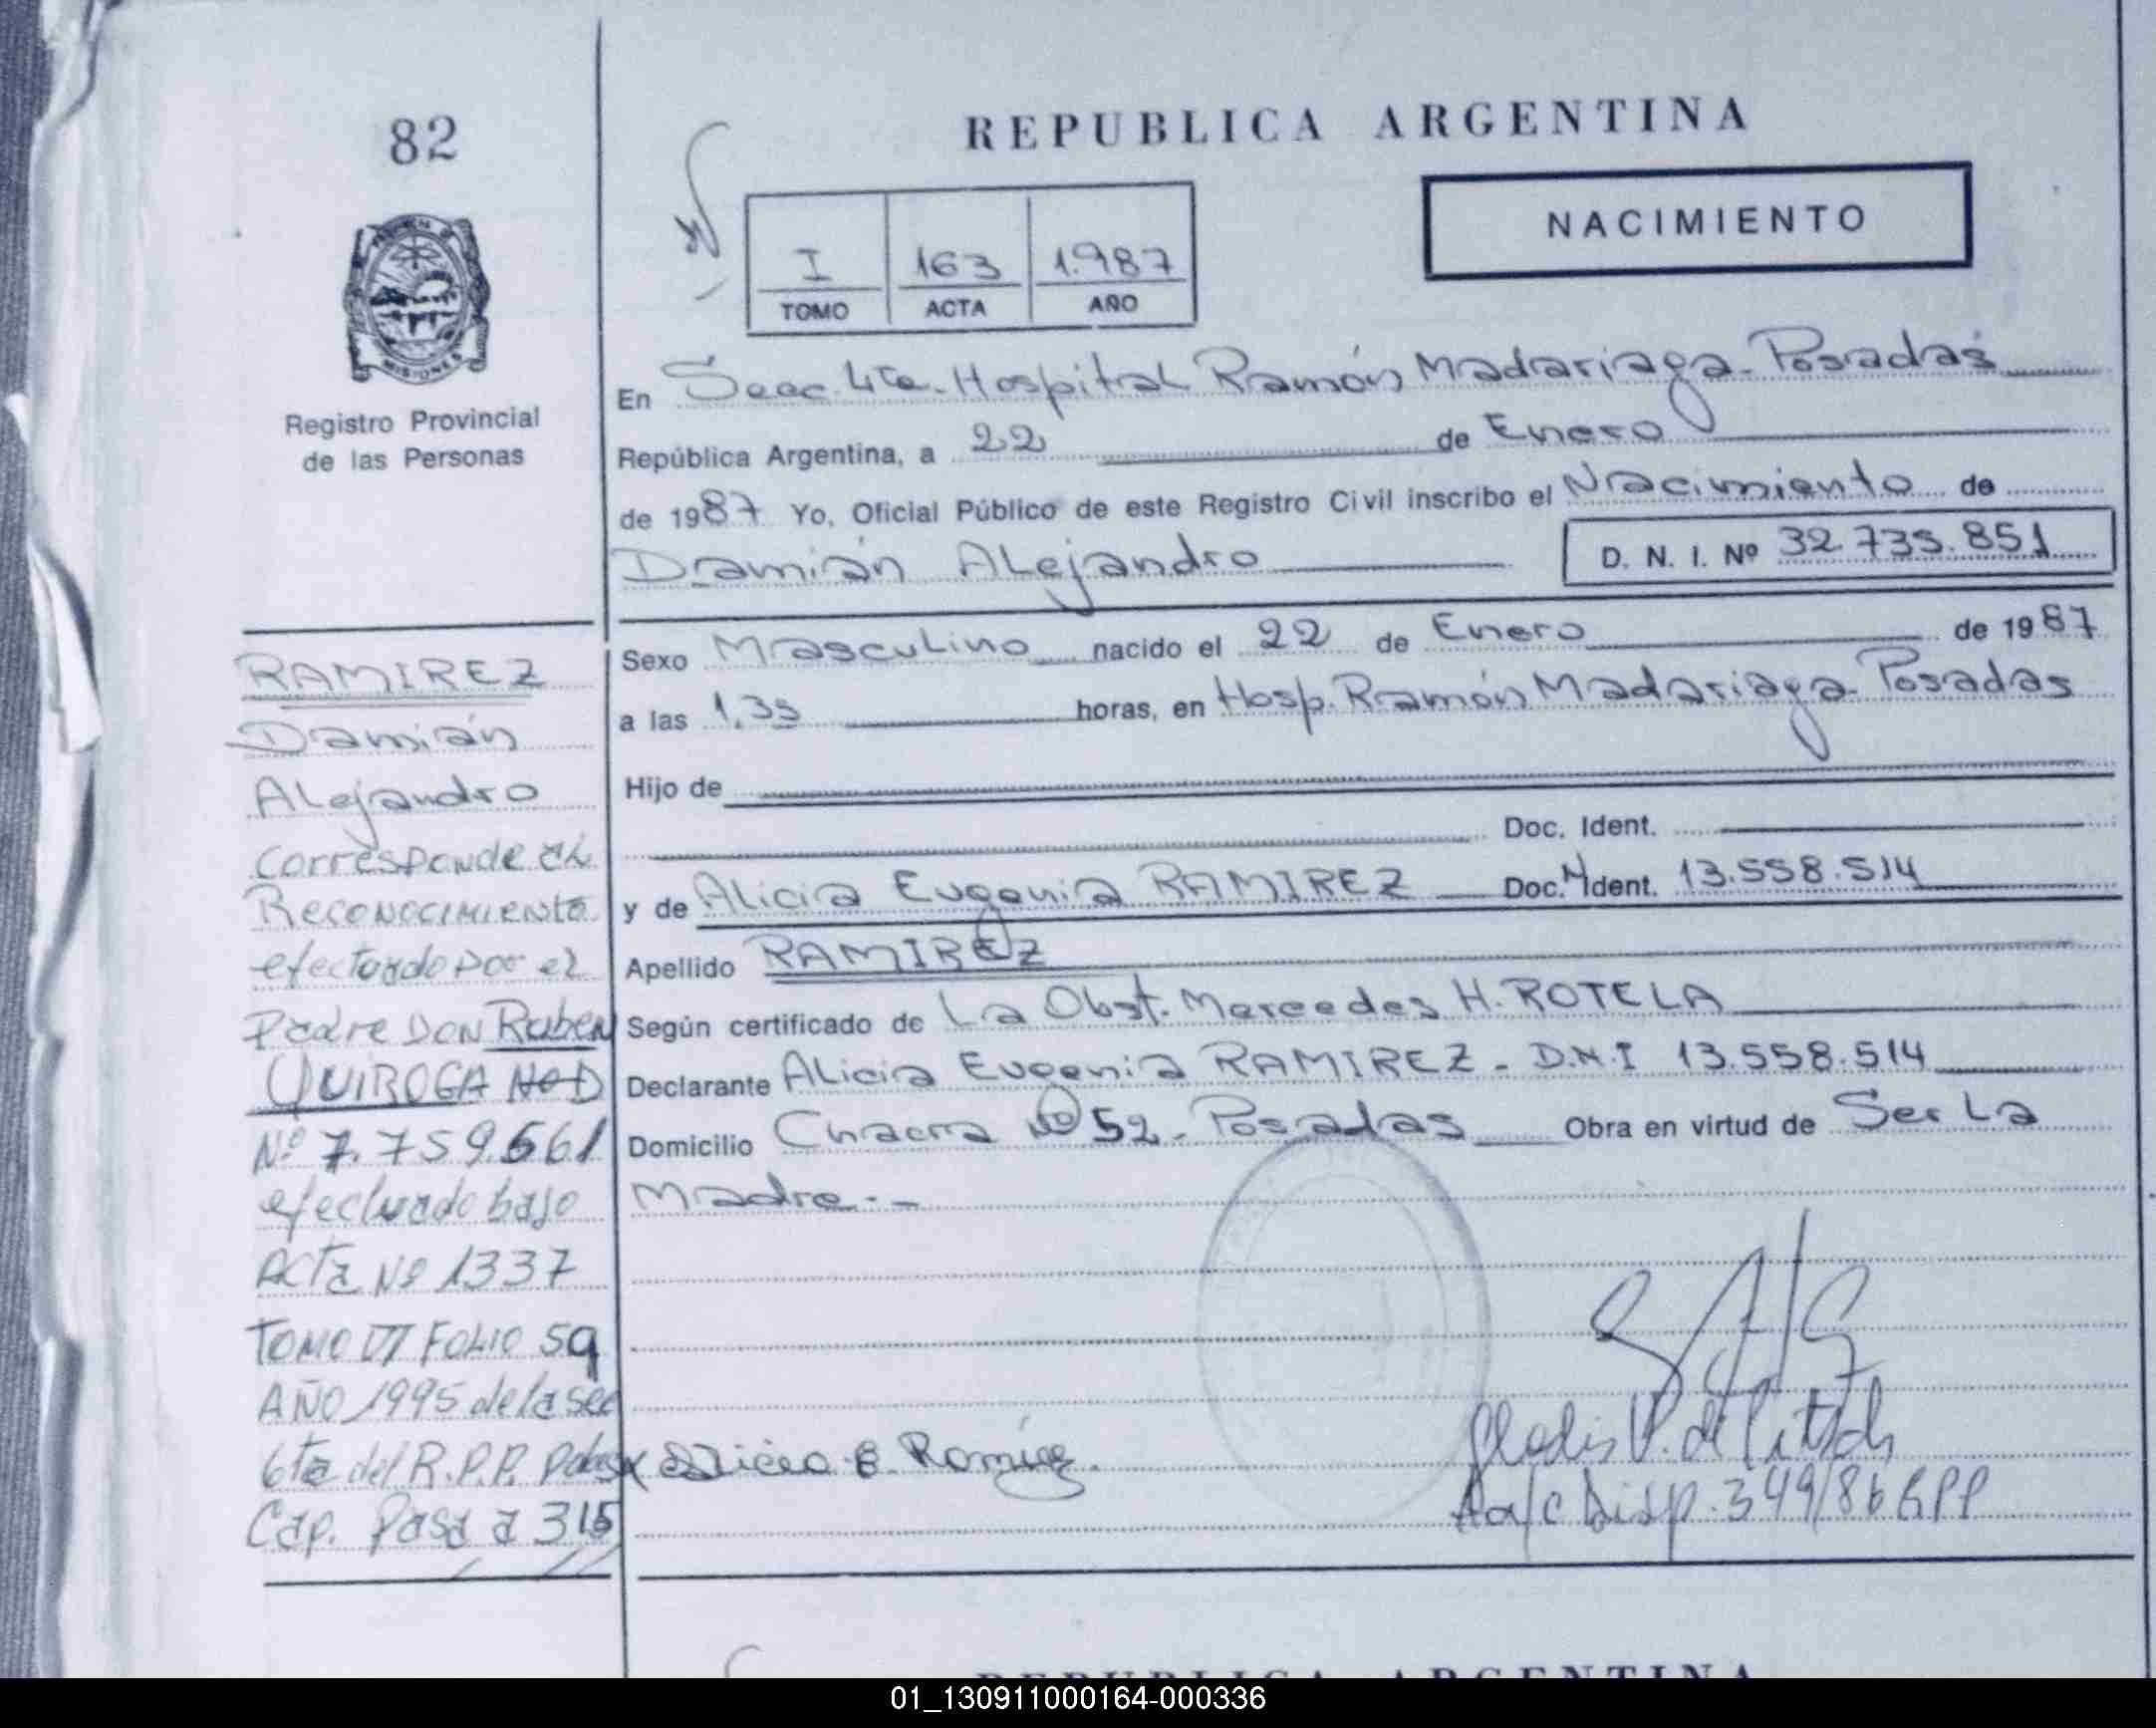 82
REPUBLICA ARGENTINA
NACIMIENTO
I 163 1.987
TOMO ACTA AÑO
MISIONES
Registro Provincial
de las Personas
En Secc 4ta. Hospital Ramón Madariaga - Posadas
República Argentina, a 22 de Enero
de 1987 Yo, Oficial Público de este Registro Civil inscribo el Nacimiento de
Damián Alejandro D. N. I. Nº 32.735.851
Sexo Masculino nacido el 22 de Enero de 1987
a las 1.35 horas, en Hosp. Ramón Madariaga - Posadas
Hijo de
Doc. Ident.
y de Alicia Eugenia RAMIREZ Doc. Ident. 13.558.514
Apellido RAMIREZ
Según certificado de La Obst. Mercedes H. ROTELA
Declarante Alicia Eugenia RAMIREZ - D.N.I 13.558.514
Domicilio Chacra Nº 52 - Posadas Obra en virtud de Ser La
Madre.-
RAMIREZ
Damián
Alejandro
Corresponde al
Reconocimiento
efectuado por el
Padre Don Ruben
QUIROGA
Nº 7.759.661
efectuado bajo
Acta Nº 1337
TOMO VI FOLIO 59
AÑO 1995 de la sec
6ta del R.P.P. Pdas
Cap. Pasa a 315
x Alicia E. Ramirez.
Disp. 349/86 RPP
REPUBLICA ARGENTINA
01_130911000164-000336